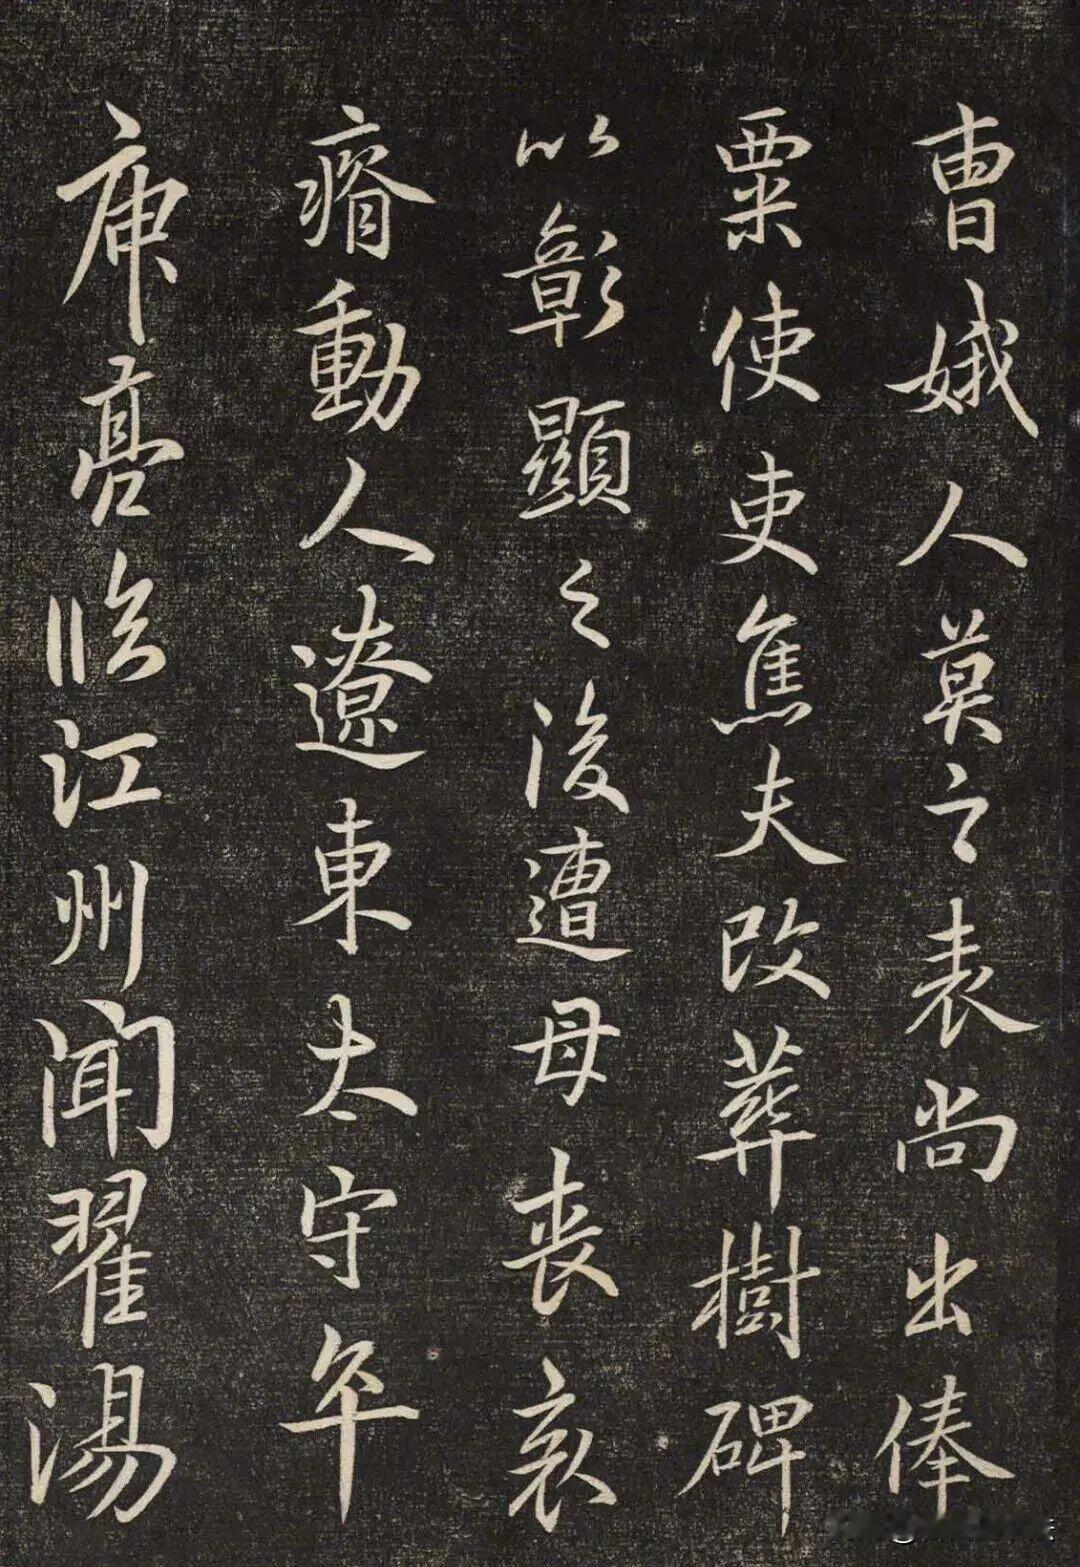 曹娥人莫之表尚出俸
粟使吏焦夫改葬樹碑
以彰顯之後遭母喪哀
瘠動人遼東太守卒
庾亮临江州闻翟湯